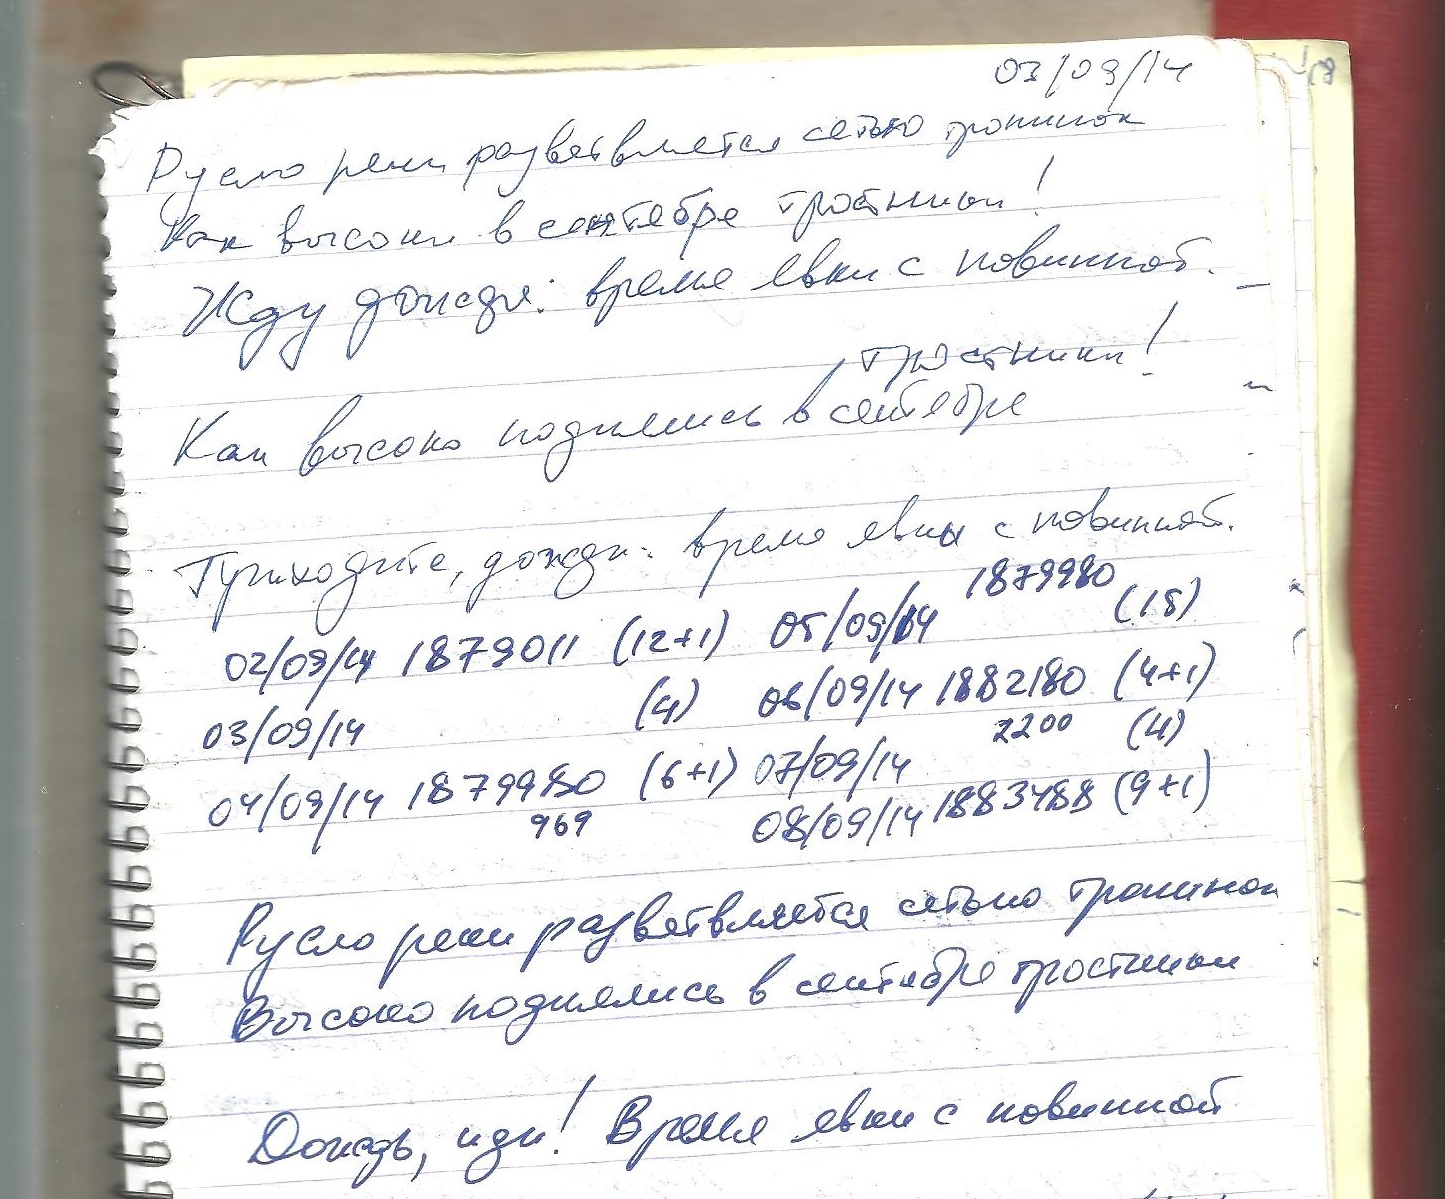 03/09/14
Русло реки разветвляется сетью тропинок
Как высоки в сентябре тростники!
Жду дождя: время явки с повинной.
тростники!
Как высоко поднялись в сентябре
Приходите, дожди: время явки с повинной.
02/09/14 1879011 (12+1) 05/09/14 1879980 (15)
03/09/14 (4) 06/09/14 1882180 (4+1)
2200 (4)
04/09/14 1879980 (6+1) 07/09/14
969 08/09/14 1883488 (9+1)
Русло реки разветвляется сетью тропинок
Высоко поднялись в сентябре тростники
Дождь, иди! Время явки с повинной